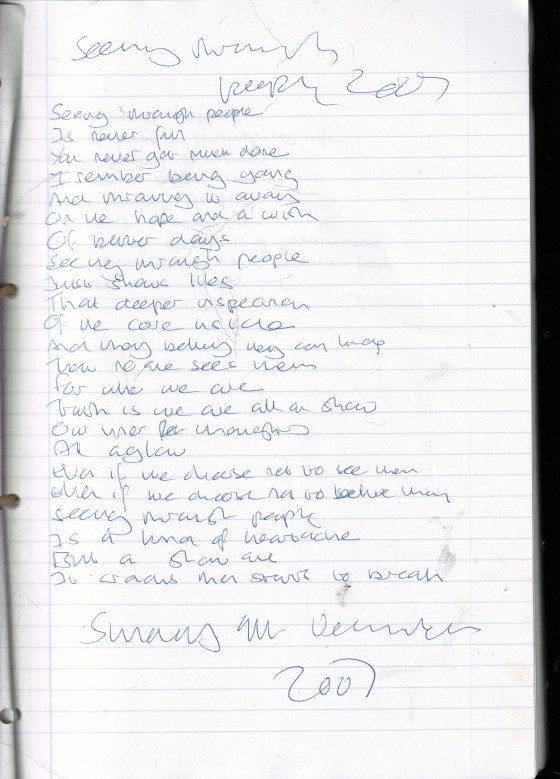 Seeing through
people 2007
Seeing through people
Is never fun
You never get much done
I remember being young
And throwing it away
On the hope and a wish
Of better days
Seeing through people
Just shows lies
That deeper inspection
Of the core inside
And they belive they can hide
how no one sees them
For who we are
Truth is we are all on show
Our inner thoughts
All aglow
Even if we choose not to see them
Even if we choose not to believe them
Seeing through people
Is a kind of heartache
But a slow one
It cracks then starts to break
Sunday 4th
2007